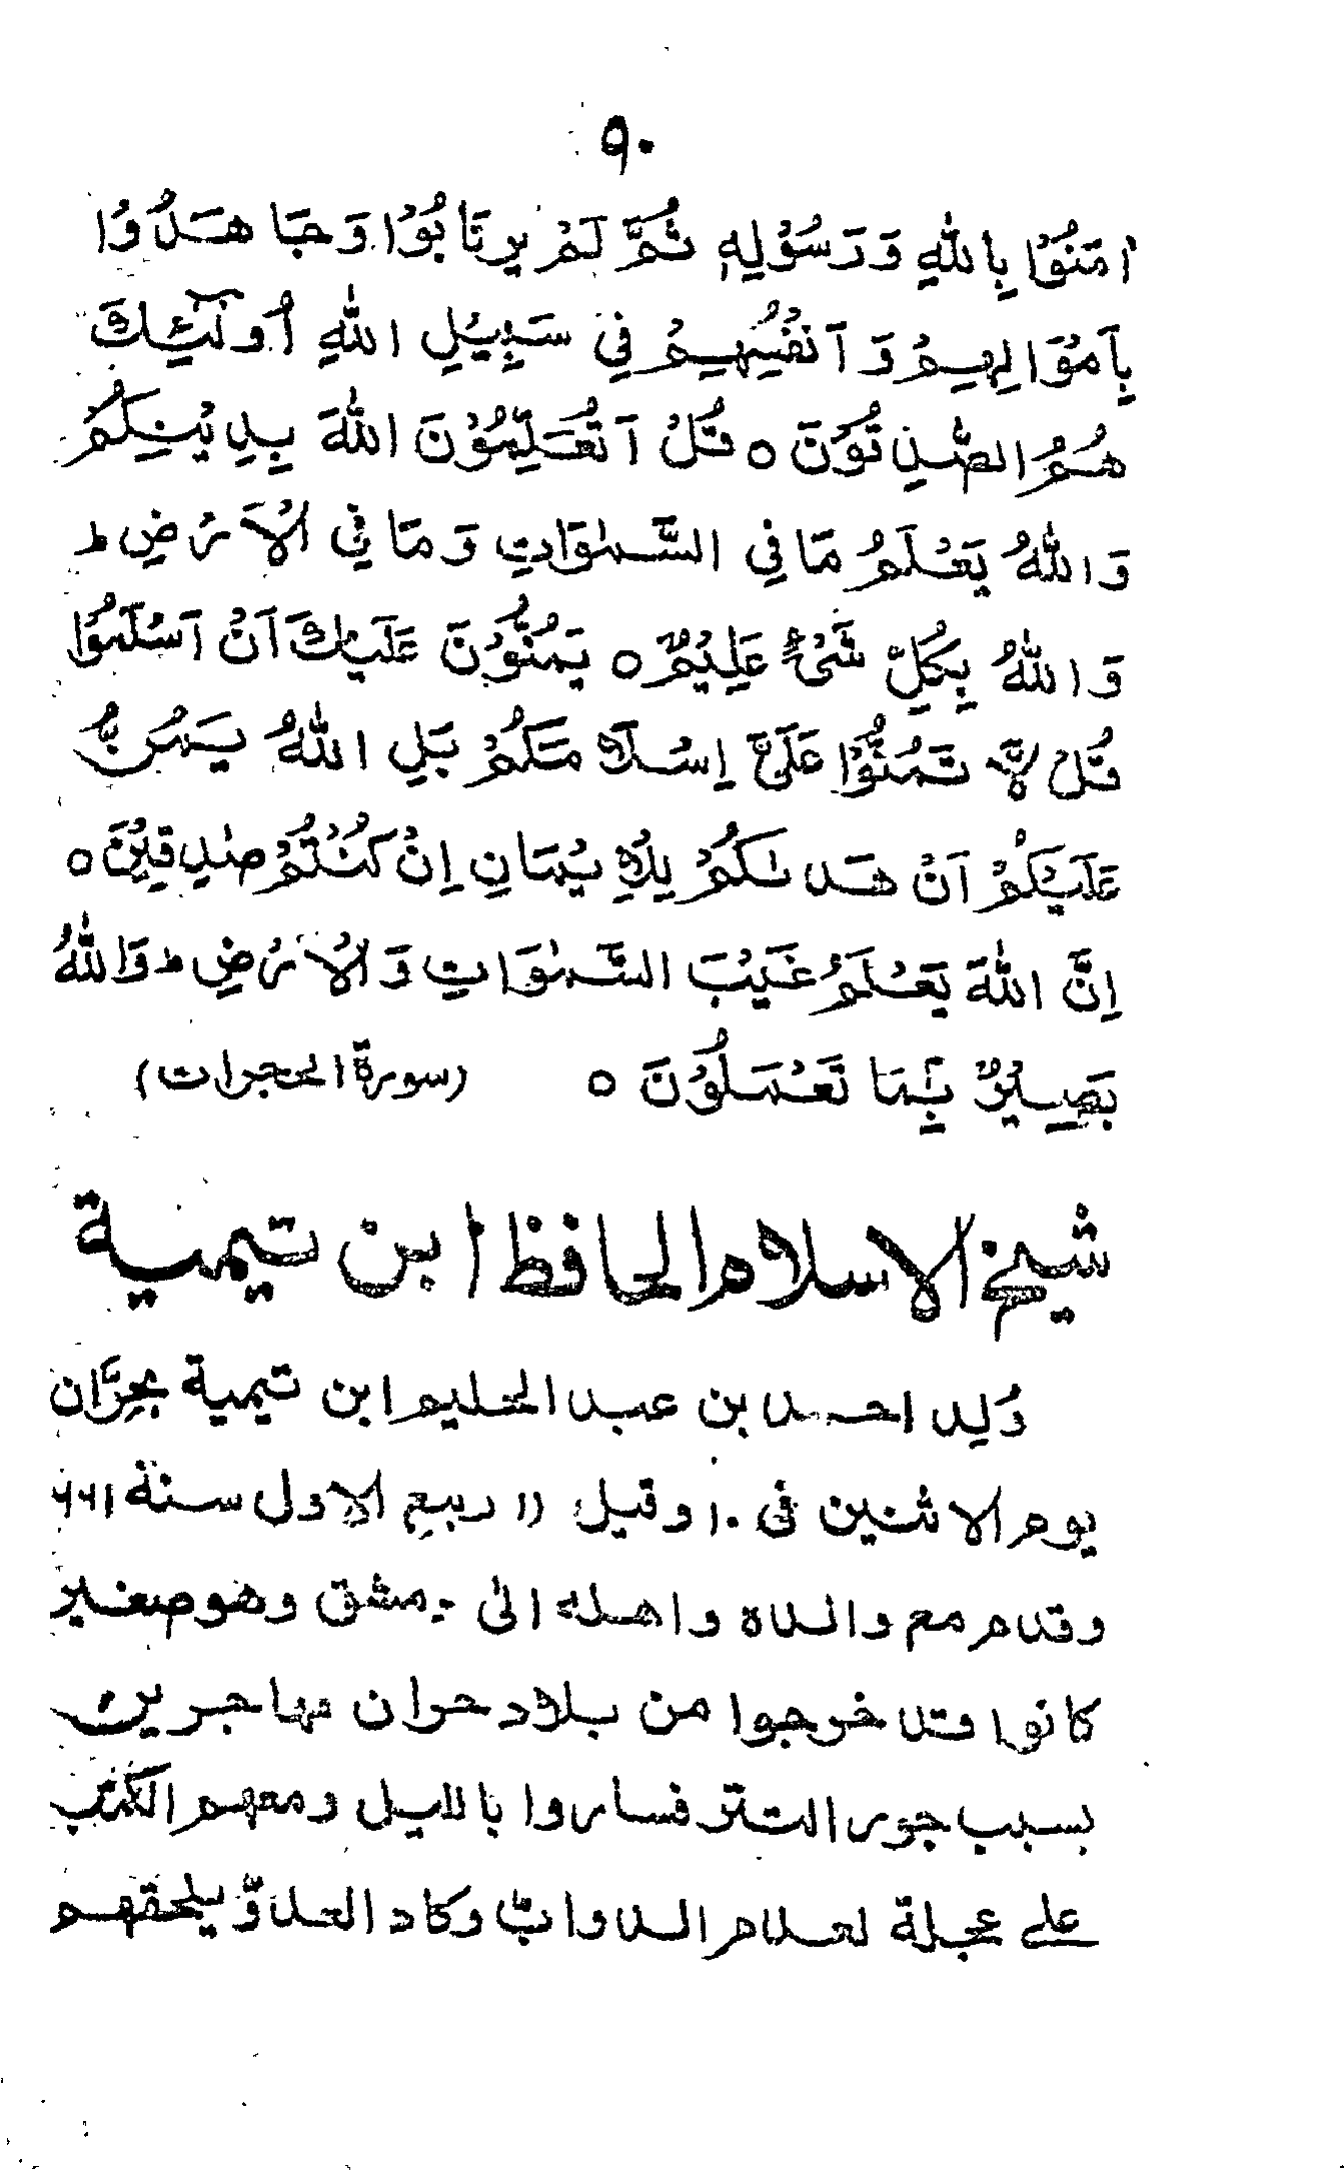 ٩٠
اٰمَنُوْا بِاللّٰهِ وَرَسُوْلِهٖ ثُمَّ لَمْ يَرْتَابُوْا وَجَاهَدُوْا
بِاَمْوَالِهِمْ وَاَنْفُسِهِمْ فِيْ سَبِيْلِ اللّٰهِ اُولٰٓئِكَ
هُمُ الصّٰدِقُوْنَ ○ قُلْ اَتُعَلِّمُوْنَ اللّٰهَ بِدِيْنِكُمْ
وَاللّٰهُ يَعْلَمُ مَا فِى السَّمٰوَاتِ وَمَا فِى الْاَرْضِ ط
وَاللّٰهُ بِكُلِّ شَيْءٍ عَلِيْمٌ ○ يَمُنُّوْنَ عَلَيْكَ اَنْ اَسْلَمُوْا
قُلْ لَّا تَمُنُّوْا عَلَيَّ اِسْلَامَكُمْ بَلِ اللّٰهُ يَمُنُّ
عَلَيْكُمْ اَنْ هَدٰىكُمْ لِلْاِيْمَانِ اِنْ كُنْتُمْ صٰدِقِيْنَ ○
اِنَّ اللّٰهَ يَعْلَمُ غَيْبَ السَّمٰوَاتِ وَالْاَرْضِ ط وَاللّٰهُ
بَصِيْرٌ بِمَا تَعْمَلُوْنَ ○ (سورة الحجرات)
شيخ الاسلام الحافظ ابن تيمية
وُلِد احمد بن عبد الحليم ابن تيمية بحرَّان
يوم الاثنين فى ١٠ وقيل ١١ ربيع الاول سنة ٦٦١
وقدم مع والده واهله الى دمشق وهو صغير
كانوا قد خرجوا من بلاد حران مهاجرين
بسبب جور التتر فساروا بالليل ومعهم الكتب
على عجلة لعدم الدوابّ وكاد العدوّ يلحقهم